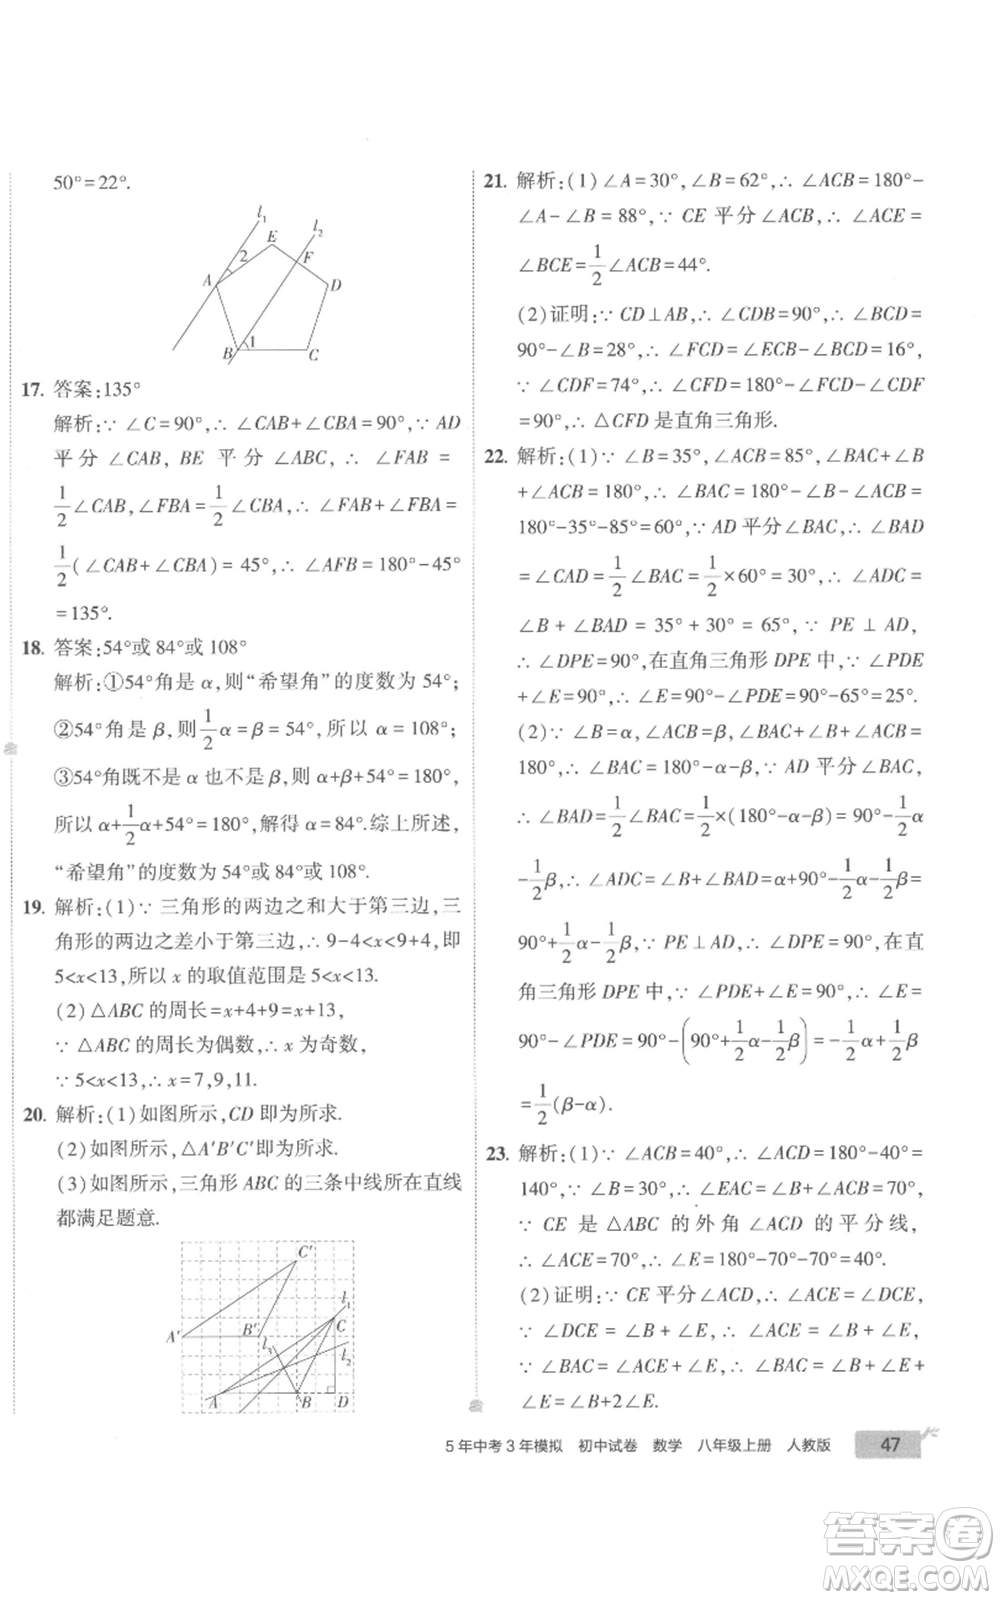 50°=22°.
l₁
l₂
E
2
F
A
D
B
1
C
17. 答案:135°
解析:∵ ∠C=90°,∴ ∠CAB+∠CBA=90°,∵ AD
平分 ∠CAB, BE 平分 ∠ABC, ∴ ∠FAB =
1/2∠CAB,∠FBA=1/2∠CBA,∴ ∠FAB+∠FBA=
1/2(∠CAB+∠CBA)=45°,∴ ∠AFB=180°-45°
=135°.
18. 答案:54°或84°或108°
解析:①54°角是 α,则“希望角”的度数为 54°;
②54°角是 β,则1/2α=β=54°,所以 α=108°;
③54°角既不是 α 也不是 β,则 α+β+54°=180°,
所以 α+1/2α+54°=180°,解得 α=84°.综上所述,
“希望角”的度数为 54°或 84°或 108°.
19. 解析:(1)∵ 三角形的两边之和大于第三边,三
角形的两边之差小于第三边,∴ 9-4<x<9+4,即
5<x<13,所以 x 的取值范围是 5<x<13.
(2)△ABC 的周长=x+4+9=x+13,
∵ △ABC 的周长为偶数,∴ x 为奇数,
∵ 5<x<13,∴ x=7,9,11.
20. 解析:(1)如图所示,CD 即为所求.
(2)如图所示,△A′B′C′即为所求.
(3)如图所示,三角形 ABC 的三条中线所在直线
都满足题意.
C′
l₁
A′
B′
l₃
C
l₂
A
B
D
21. 解析:(1)∠A=30°,∠B=62°,∴ ∠ACB=180°-
∠A-∠B=88°,∵ CE 平分∠ACB,∴ ∠ACE=
∠BCE=1/2∠ACB=44°.
(2)证明:∵ CD⊥AB,∴ ∠CDB=90°,∴ ∠BCD=
90°-∠B=28°,∴ ∠FCD=∠ECB-∠BCD=16°,
∵ ∠CDF=74°,∴ ∠CFD=180°-∠FCD-∠CDF
=90°,∴ △CFD 是直角三角形.
22. 解析:(1)∵ ∠B=35°,∠ACB=85°,∠BAC+∠B
+∠ACB=180°,∴ ∠BAC=180°-∠B-∠ACB=
180°-35°-85°=60°,∵ AD 平分∠BAC,∴ ∠BAD
=∠CAD=1/2∠BAC=1/2×60°=30°,∴ ∠ADC=
∠B + ∠BAD = 35° + 30° = 65°, ∵ PE ⊥ AD,
∴ ∠DPE=90°,在直角三角形 DPE 中,∵ ∠PDE
+∠E=90°,∴ ∠E=90°-∠PDE=90°-65°=25°.
(2)∵ ∠B=α,∠ACB=β,∠BAC+∠B+∠ACB=
180°,∴ ∠BAC=180°-α-β,∵ AD 平分∠BAC,
∴ ∠BAD=1/2∠BAC=1/2×(180°-α-β)=90°-1/2α
-1/2β,∴ ∠ADC=∠B+∠BAD=α+90°-1/2α-1/2β=
90°+1/2α-1/2β,∵ PE⊥AD,∴ ∠DPE=90°,在直
角三角形 DPE 中,∵ ∠PDE+∠E=90°,∴ ∠E=
90°-∠PDE=90°-(90°+1/2α-1/2β)=-1/2α+1/2β
=1/2(β-α).
23. 解析:(1)∵ ∠ACB=40°,∴ ∠ACD=180°-40°=
140°,∵ ∠B=30°,∴ ∠EAC=∠B+∠ACB=70°,
∵ CE 是 △ABC 的外角 ∠ACD 的平分线,
∴ ∠ACE=70°,∴ ∠E=180°-70°-70°=40°.
(2)证明:∵ CE 平分∠ACD,∴ ∠ACE=∠DCE,
∵ ∠DCE = ∠B + ∠E, ∴ ∠ACE = ∠B + ∠E,
∵ ∠BAC = ∠ACE + ∠E, ∴ ∠BAC = ∠B + ∠E +
∠E=∠B+2∠E.
5年中考3年模拟 初中试卷 数学 八年级上册 人教版 47
答案卷
MXQE.COM